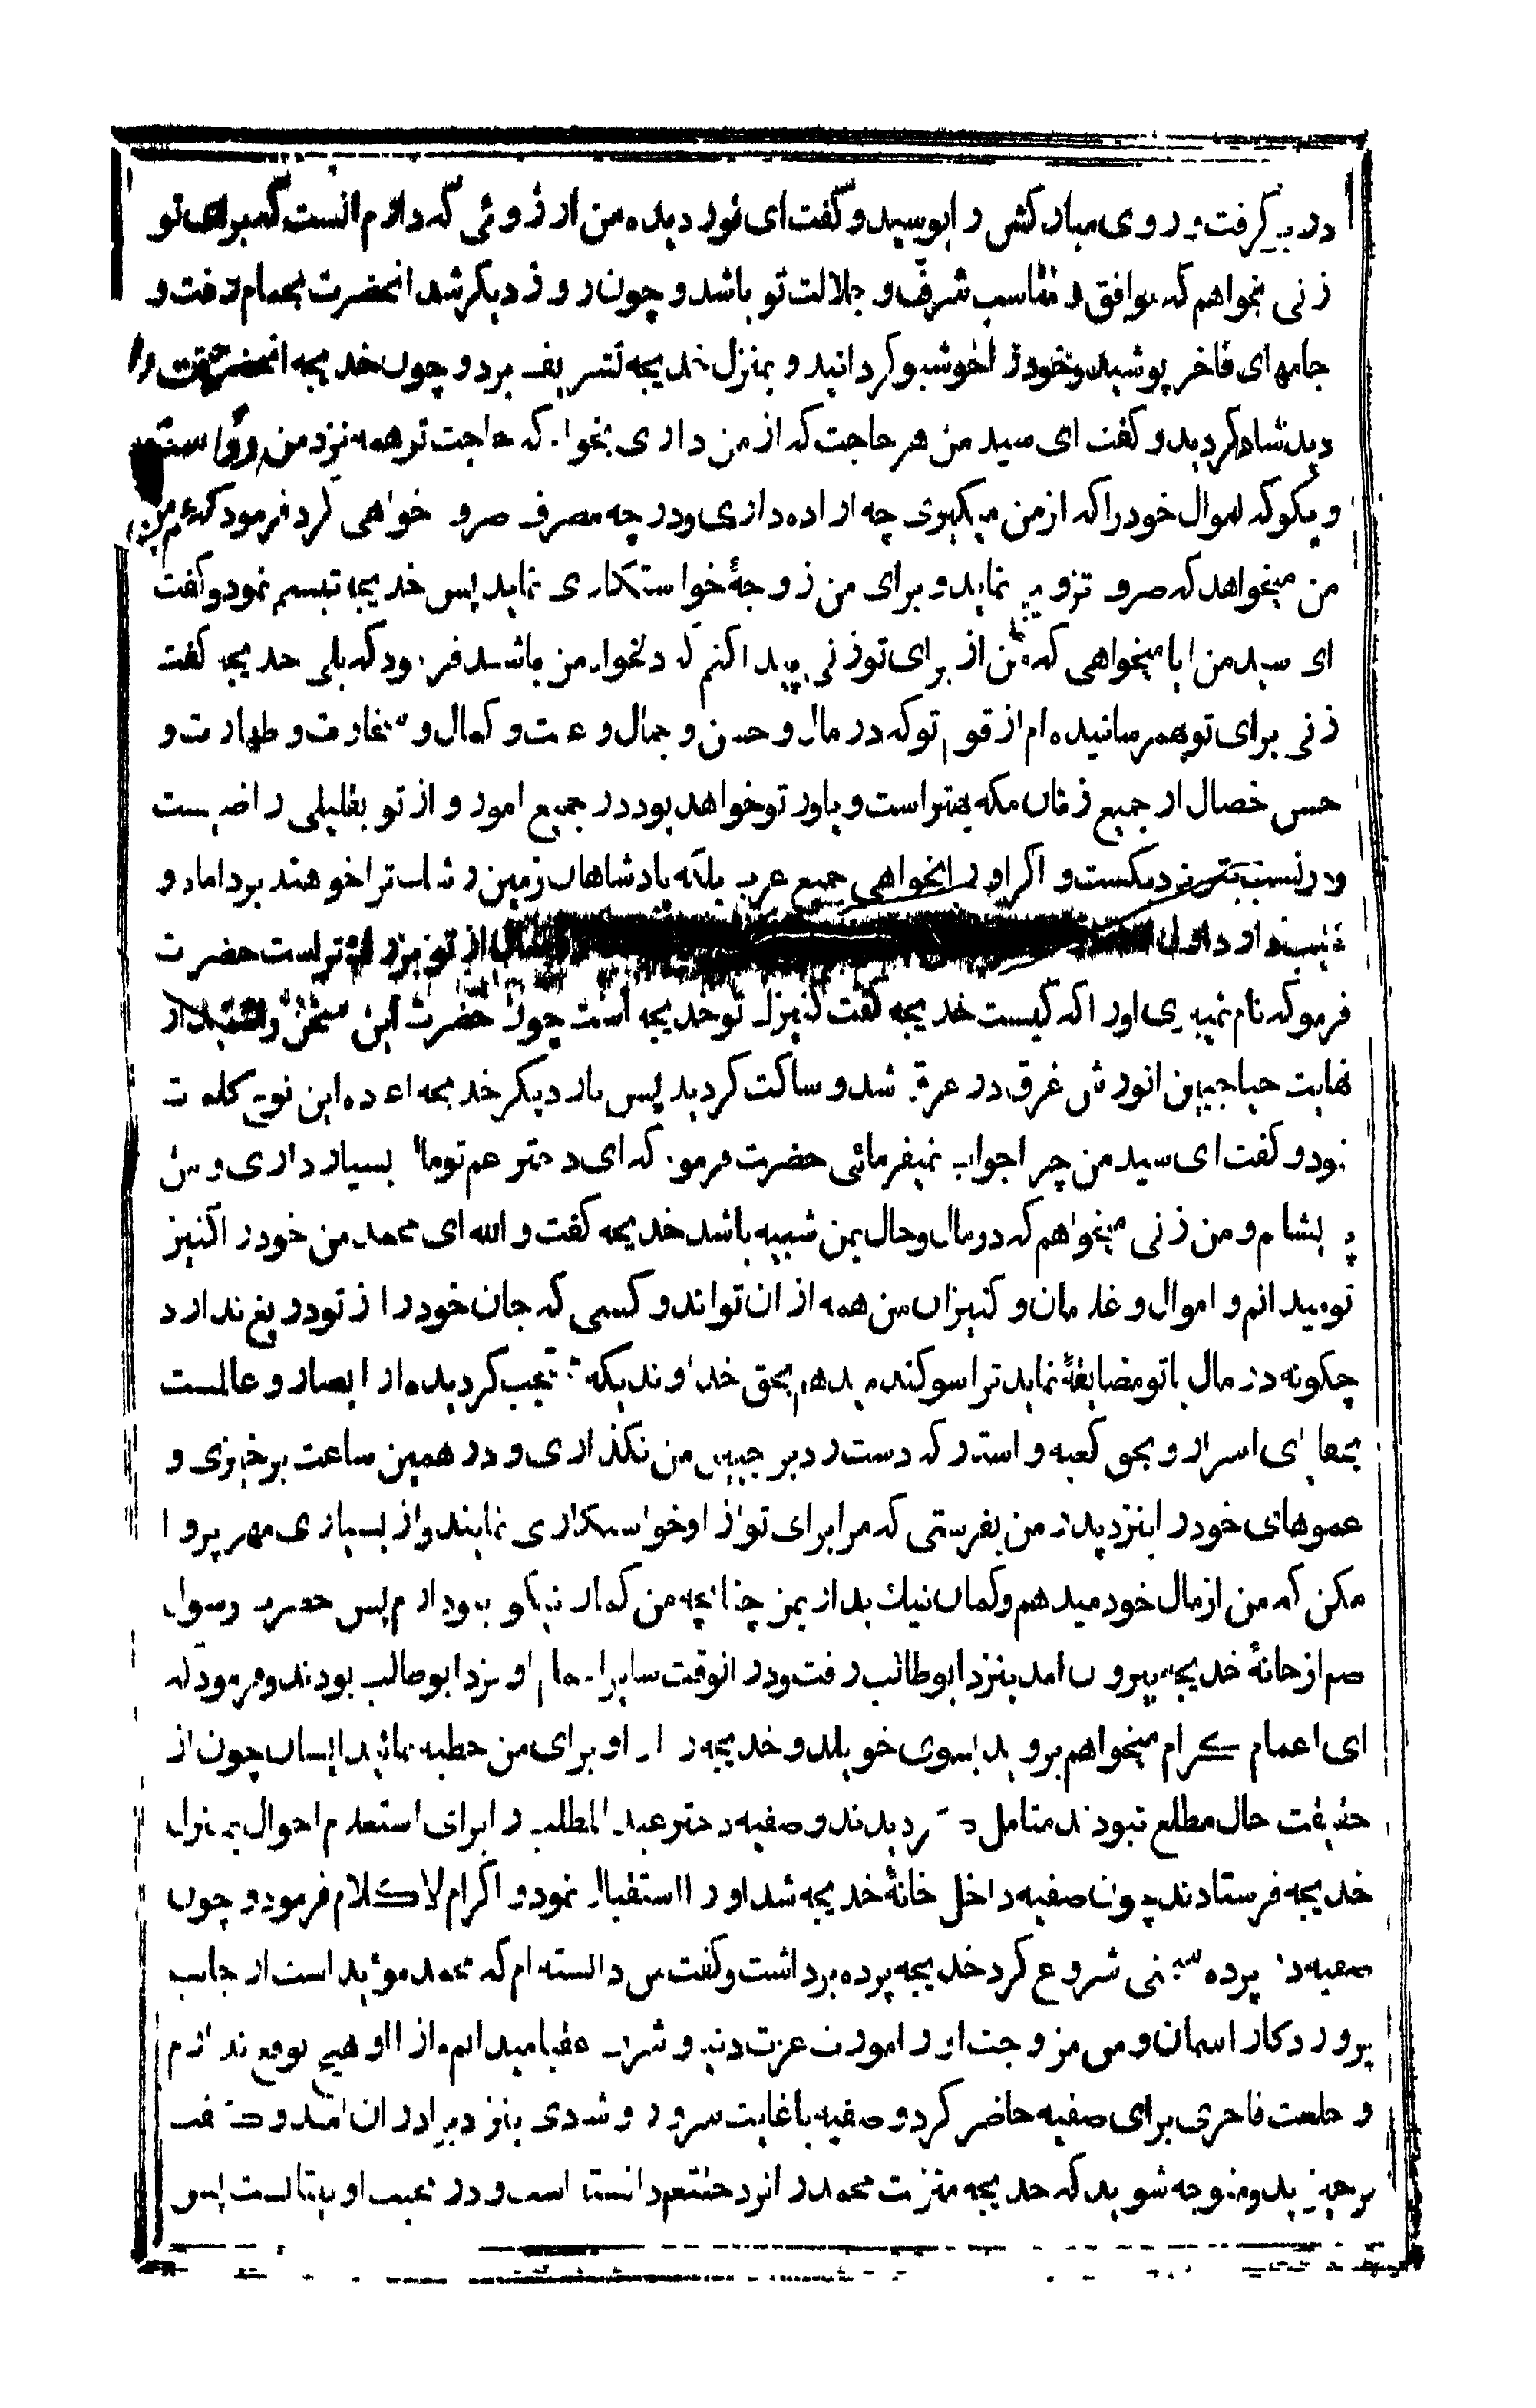 در بر گرفت و روی مبارکش را بوسید و گفت ای نور دیده من ارزوئی که دارم انست که برای تو
زنی بخواهم که موافق و مناسب شرف و جلالت تو باشد و چون روز دیکر شد انحضرت بحمام رفت و
جامهای فاخر پوشید و خود را خوشبو کردانید و بمنزل خدیجه تشریف برد و چون خدیجه انحضرت را
دید شاد کردید و گفت ای سید من هر حاجت که از من داری بخواه که حاجت تو همه نزد من روا است
و بکو که اموال خود را که از من میکیری چه اراده داری و در چه مصرف صرف خواهی کرد فرمود که عم من
من میخواهد که صرف تزویج نماید و برای من زوجهٔ خواستکاری نماید پس خدیجه تبسم نمود و گفت
ای سید من ایا میخواهی که من از برای تو زنی پیدا کنم که دلخواه من باشد فرمود که بلی خدیجه گفت
زنی برای تو بهم رسانیده ام از قوم تو که در مال و حسن و جمال و عفت و کمال و سخاوت و طهارت و
حسن خصال از جمیع زنان مکه بهتر است و یاور تو خواهد بود در جمیع امور و از تو بقلیلی راضیست
و در نسب بتو نزدیکست و اکر او را بخواهی جمیع عرب بلکه پادشاهان زمین رشک ترا خواهند برد اما دو
عیب دارد از تو بزرکتر است حضرت
فرمو که نام نمیبری او را که کیست خدیجه گفت کنیزک تو خدیجه است چون حضرت این سخن را شنید از
نهایت حیا جبین انورش غرق در عرق شد و ساکت کردید پس بار دیکر خدیجه اعاده این نوع کلمات
نمود و گفت ای سید من چرا جواب نمیفرمائی حضرت فرمود که ای دختر عم تو مال بسیار داری و من
پریشانم و من زنی میخواهم که در مال و حال بمن شبیه باشد خدیجه گفت والله ای محمد من خود را کنیز
تو میدانم و اموال و غلامان و کنیزان من همه از ان تواند و کسی که جان خود را از تو دریغ ندارد
چکونه در مال با تو مضایقهٔ نماید ترا سوکند میدهم بحق خداوندیکه محتجب کردیده از ابصار و عالمست
بخفایای اسرار و بحق کعبه و استار که دست رد بر جبین من نکذاری و در همین ساعت برخیزی و
عموهای خود را بنزد پدر من بفرستی که مرا برای تو از او خواستکاری نمایند و از بسیاری مهر پروا
مکن که من از مال خود میدهم و کمان نیک بدار بمن چنانچه من کمان نیکو بتو دارم پس حضرت رسول
صم از خانهٔ خدیجه بیرون امد بنزد ابوطالب رفت و در انوقت سایر اعمام او نزد ابوطالب بودند و فرمود که
ای اعمام کرام میخواهم بروید بسوی خویلد و خدیجه را از او برای من خطبه نمائید ایشان چون از
حقیقت حال مطلع نبودند متامل کردیدند و صفیه دختر عبدالمطلب را برای استعلام احوال بمنزل
خدیجه فرستادند چون صفیه داخل خانهٔ خدیجه شد او را استقبال نمود و اکرام لاکلام فرمود و چون
صفیه در پرده سخنی شروع کرد خدیجه پرده برداشت و گفت من دانسته ام که محمد مؤید است از جانب
پروردکار اسمان و من مزاوجت او را مورث عزت دنیا و شرف عقبا میدانم و از او هیچ توقع ندارم
و خلعت فاخری برای صفیه حاضر کرد و صفیه با غایت سرور و شادی بنزد برادران امد و گفت
برخیزید و متوجه شوید که خدیجه منزلت محمد را نزد حقتعم دانسته است و در محبت او بیتابست پس